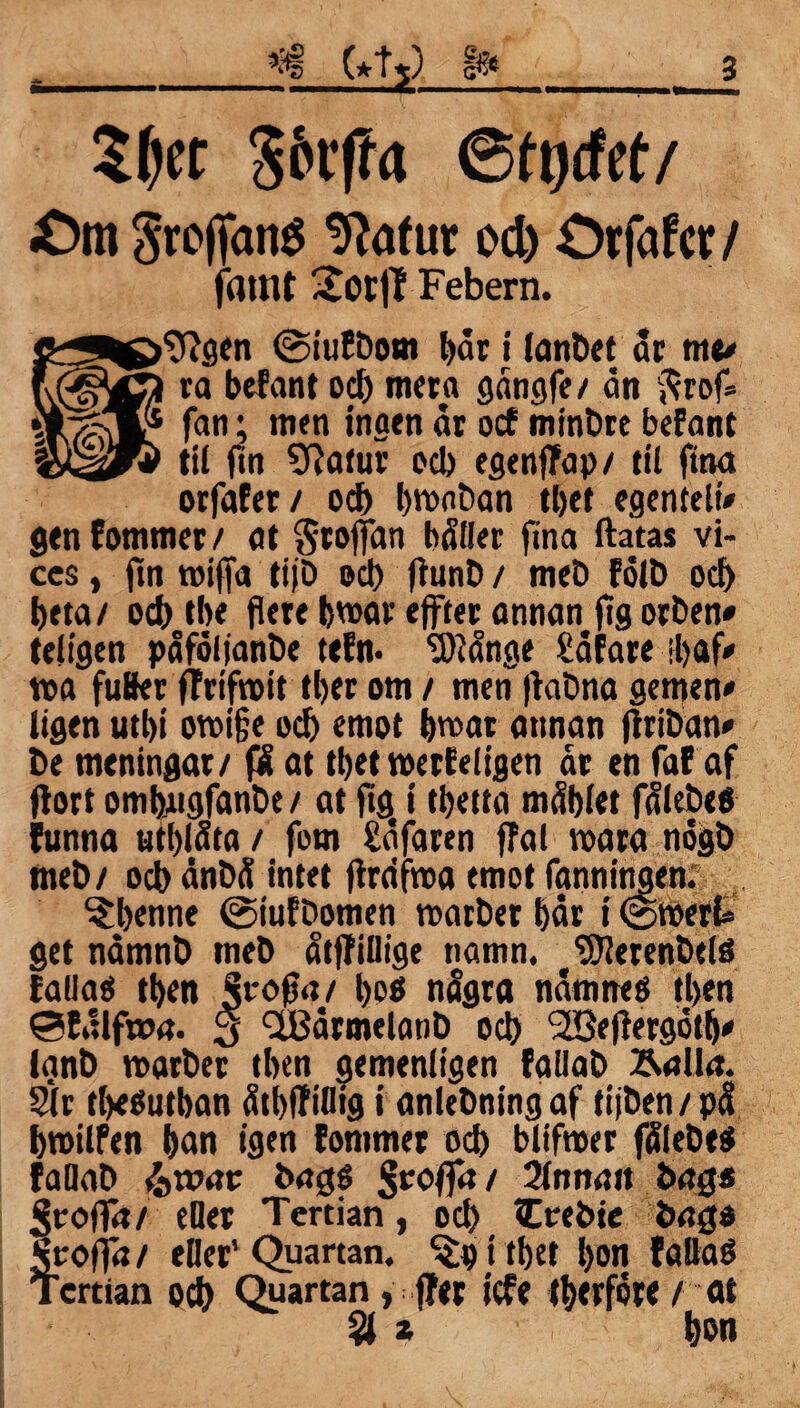 (*†*) 3
Ther Första Stycket/
Om Frossans Natur och Orsaker/
samt Torsk Febern.
INgen Siukdom här i landet är me-
ra bekant och mera gängse/ än Fros-
san; men ingen är ock mindre bekant
til sin Natur och egenskap/ til sina
orsaker / och hwadan thet egenteli-
gen kommer/ at Frossan håller sina statas vi-
ces, sin wissa tijd och stund / med köld och
heta/ och the flere hwar effter annan sig orden-
teligen påföljande tekn. Månge Läkare haf-
wa fuller skrifwit ther om / men stadna gemen-
ligen uthi owiße och emot hwar annan stridan-
de meningar/ så at thet werkeligen är en sak af
stort omhugsande / at sig i thetta måhlet således
kunna uthlåta / som Läsaren skal wara nögd
med/ och ändå intet sträfwa emot sanningen.
Thenne Siukdomen warder här i Swerk-
get nämnd med åtskillige namn. Merendels
kallas then Froßa/ hos några nämnes then
Skälfwa. J Wärmeland och Westergöth-
land warder then gemenligen kallad Kalla.
Är thesuthan åthskillig i anledning af tijden / på
hwilken han igen kommer och blifwer således
kallad Hwar dags Frossa / Annan dags
Frossa/ eller Tertian, och Tredie dags
Frossa/ eller Quartan. Ty i thet hon kallas
Tertian och Quartan, sker icke therföre / at
A 2 hon